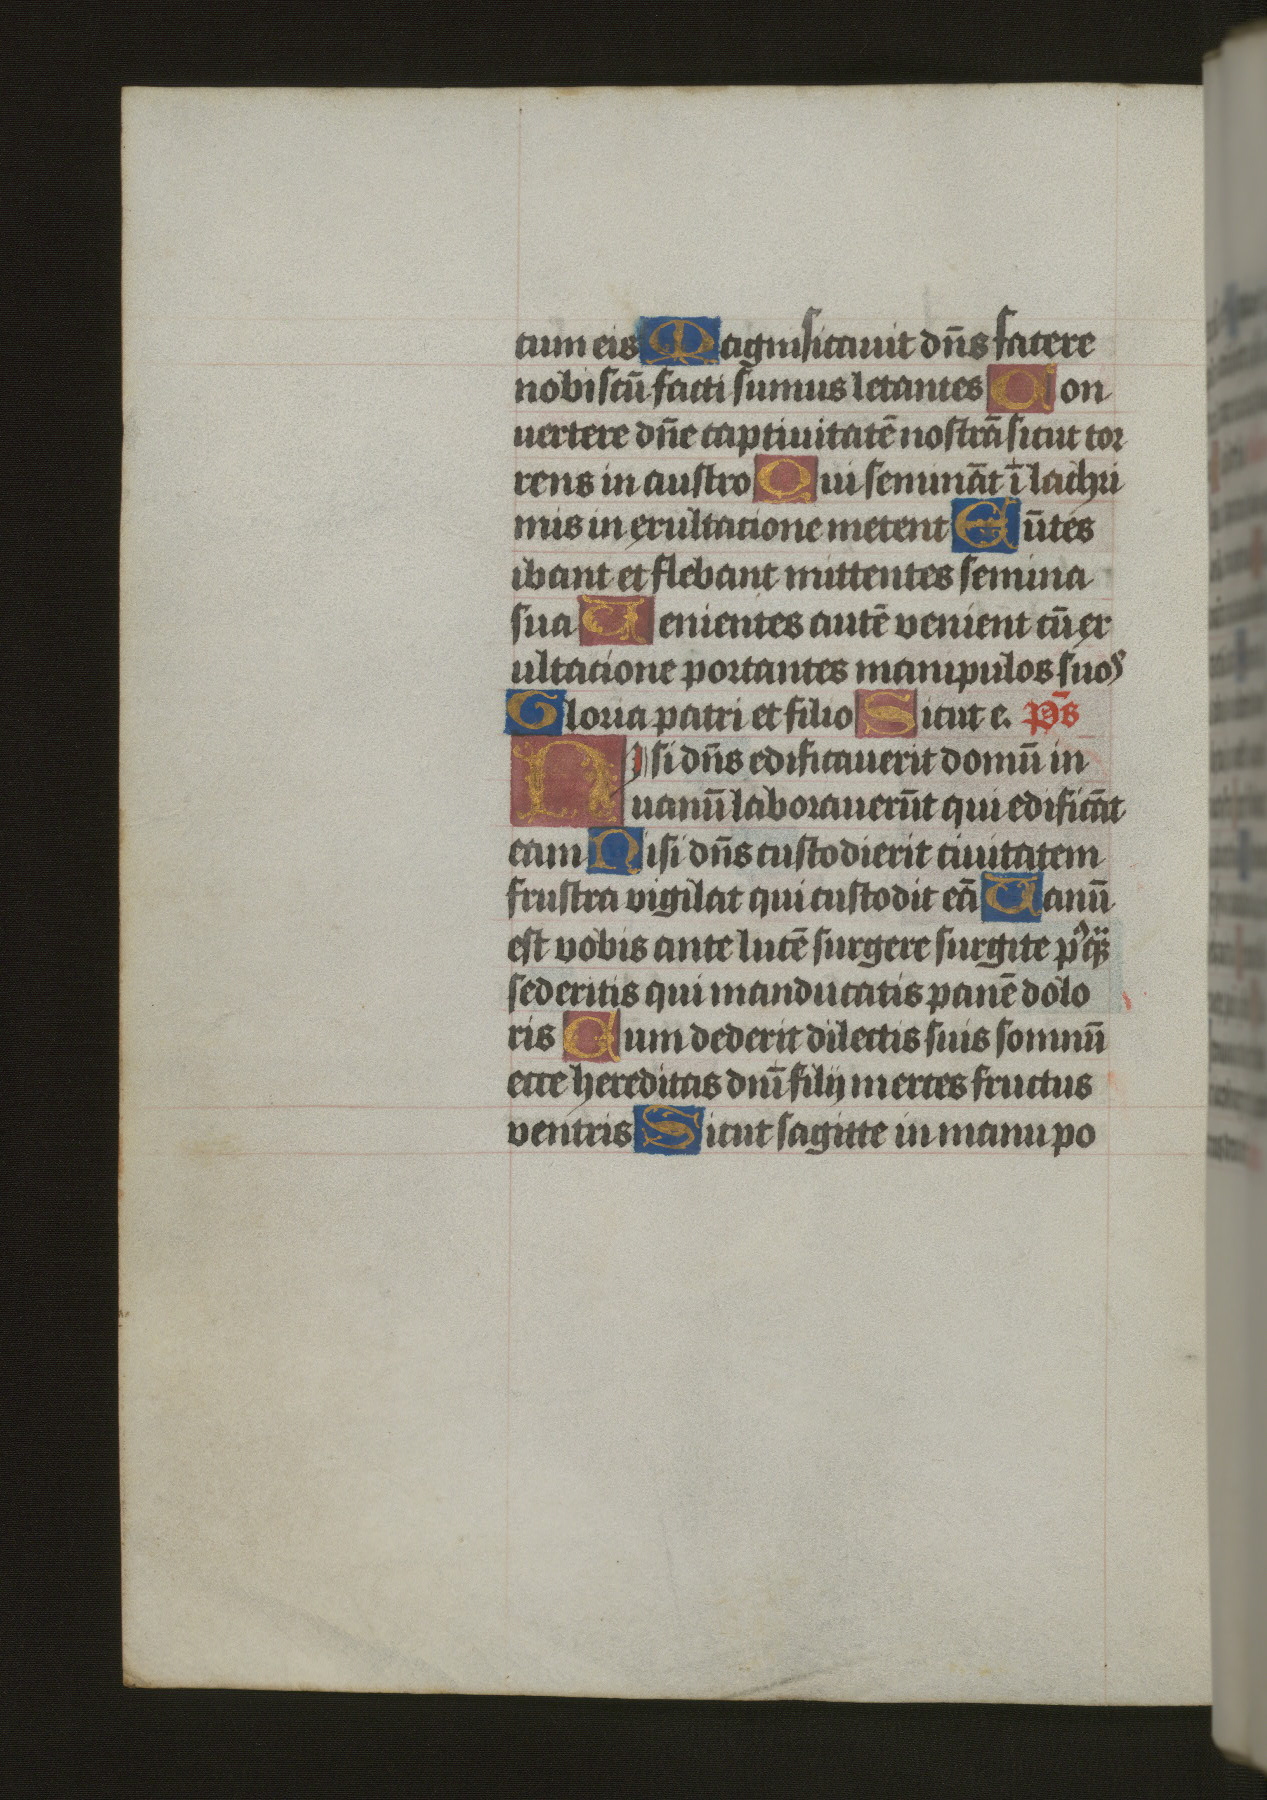 cum eis Magnificauit dn̄s facere
nobiscū facti sumus letantes Con
uertere dn̄e captiuitatē nostrā sicut tor
rens in austro Qui semināt ī lachri
mis in exultacione metent Eūtes
ibant et flebant mittentes semina
sua Uenientes autē venient cū ex
ultacione portantes manipulos suos
Gloria patri et filio Sicut e. p̄s
Nisi dn̄s edificauerit domū in
uanū laborauerūt qui edificāt
eam Nisi dn̄s custodierit ciuitatem
frustra vigilat qui custodit eā Uanū
est vobis ante lucē surgere surgite pꝰq̄
sederitis qui manducatis panē dolo
ris Cum dederit dilectis suis somnū
ecce hereditas dnī filij merces fructus
ventris Sicut sagitte in manu po